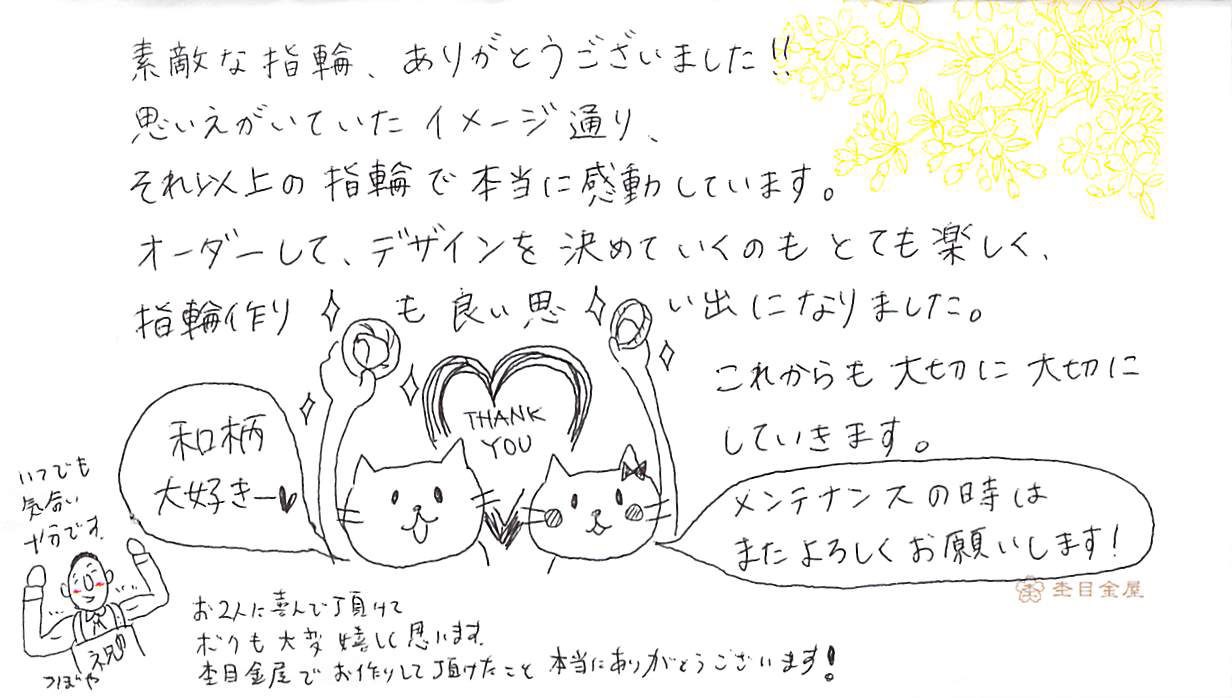 素敵な指輪、ありがとうございました!!
思いえがいていたイメージ通り、
それ以上の指輪で本当に感動しています。
オーダーして、デザインを決めていくのもとても楽しく、
指輪作りも良い思い出になりました。
これからも大切に大切に
していきます。
THANK
YOU
和柄
大好きー♥
メンテナンスの時は
またよろしくお願いします!
杢目金屋
いつでも
気合い
十分です。
祝
つぼや
お2人に喜んで頂けて
ボクも大変嬉しく思います。
杢目金屋でお作りして頂けたこと本当にありがとうございます!